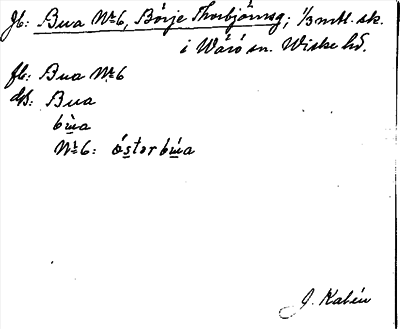 Jb: Bua № 6, Börje Thorbjörnsg; 1/3 mtl. sk.
i Wärö sn. Wiske hd.
fb: Bua № 6
dsb: Bua
bu̱a
№ 6: östorbu̱a
J. Kalén